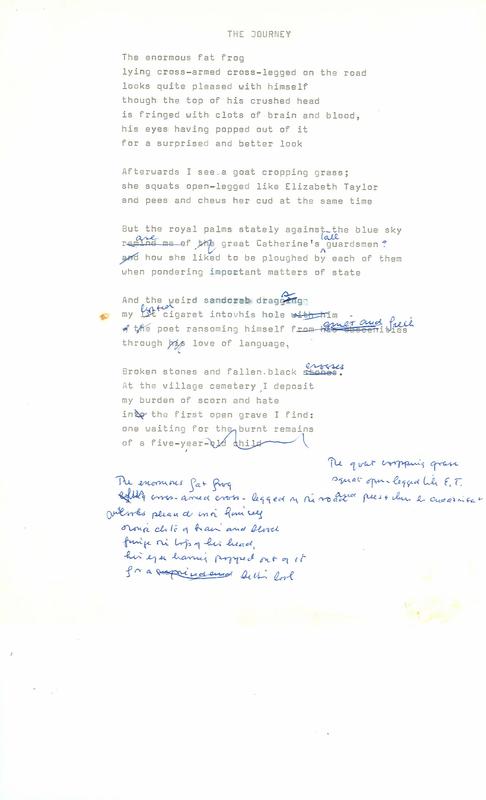 THE JOURNEY
The enormous fat frog
lying cross-armed cross-legged on the road
looks quite pleased with himself
though the top of his crushed head
is fringed with clots of brain and blood,
his eyes having popped out of it
for a surprised and better look
Afterwards I see a goat cropping grass;
she squats open-legged like Elizabeth Taylor
and pees and chews her cud at the same time
But the royal palms stately against the blue sky
are tall
remind me of the great Catherine's guardsmen
and how she liked to be ploughed by each of them
when pondering important matters of state
And the weird sandcrab dragging
my lit cigaret into his hole with him
guilt and
of the poet ransoming himself from his obscenities
through his love of language,
crosses
Broken stones and fallen black stones.
At the village cemetery I deposit
my burden of scorn and hate
into the first open grave I find:
one waiting for the burnt remains
of a five-year-old child
The goat cropping grass
squat open-legged like E.T.
The enormous fat frog
cross-armed cross-legged on the road
and pees + chews
looks pleased with himself
clots of brain and blood
fringe the top of his head,
his eyes having popped out of it
for a better look